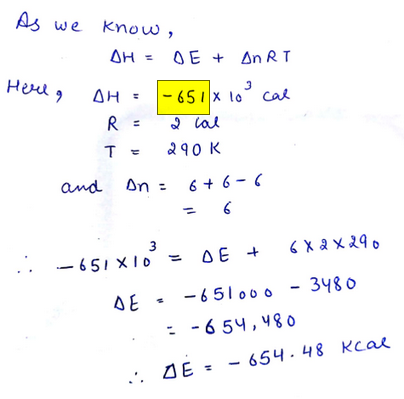 As we know,
ΔH = ΔE + ΔnRT
Here, ΔH = -651 x 10³ cal
R = 2 cal
T = 290 K
and Δn = 6 + 6 - 6
= 6
∴ -651 x 10³ = ΔE + 6 x 2 x 290
ΔE = -651000 - 3480
= -654,480
∴ ΔE = -654.48 Kcal